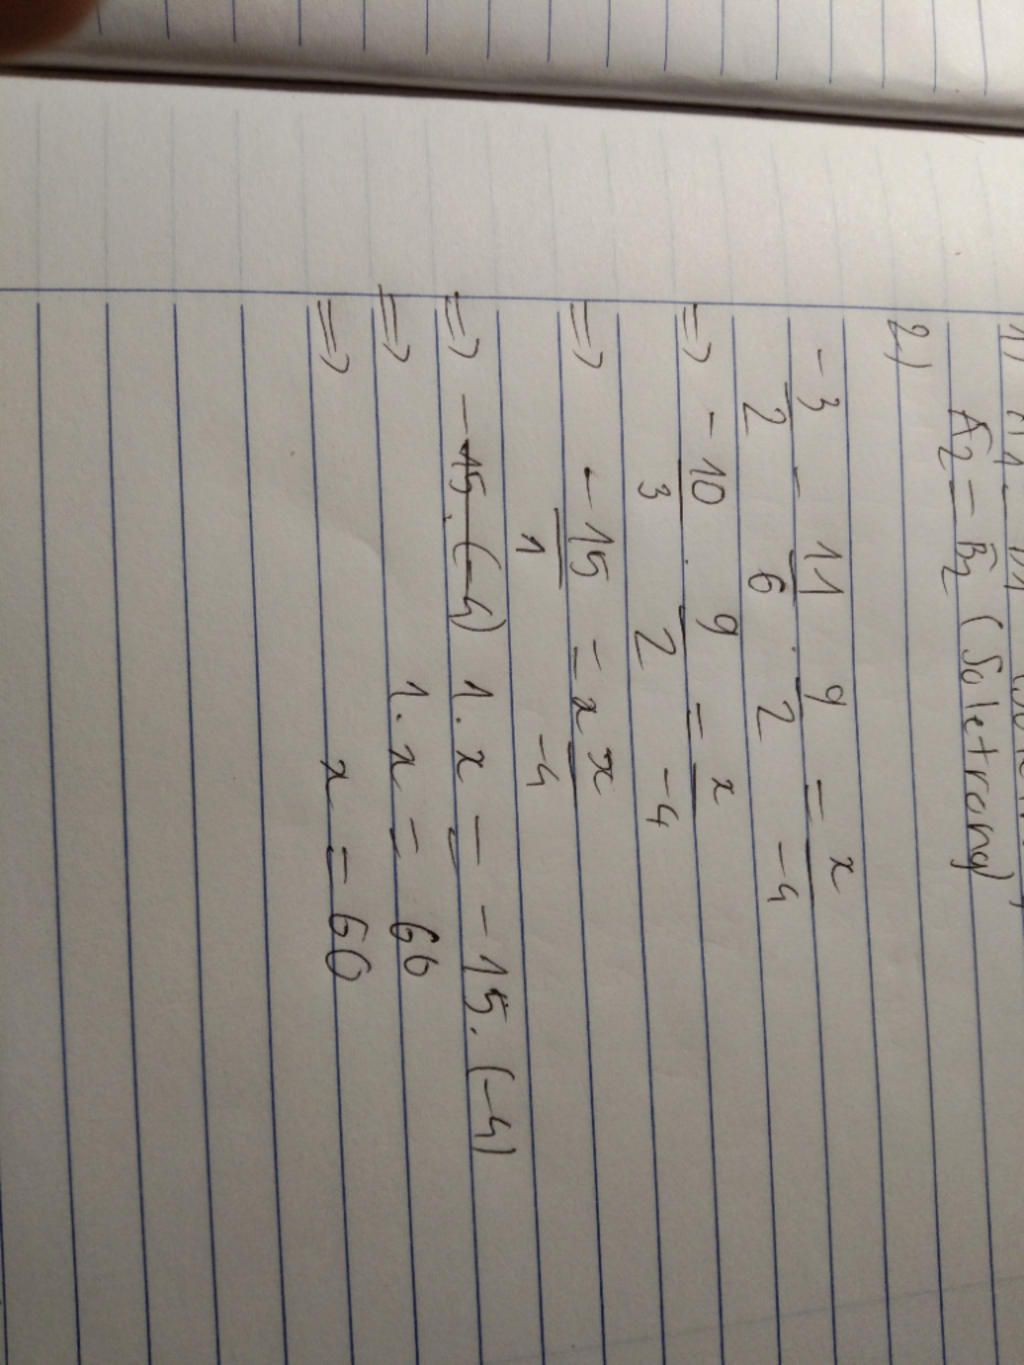 Â2 = B̂2 (Soletrang)
2)
-3/2 - 11/6 . 9/2 = x/-4
=> -10/3 . 9/2 = x/-4
=> -15/1 = x/-4
=> 1.x = -15.(-4)
=> 1.x = 60
=> x = 60